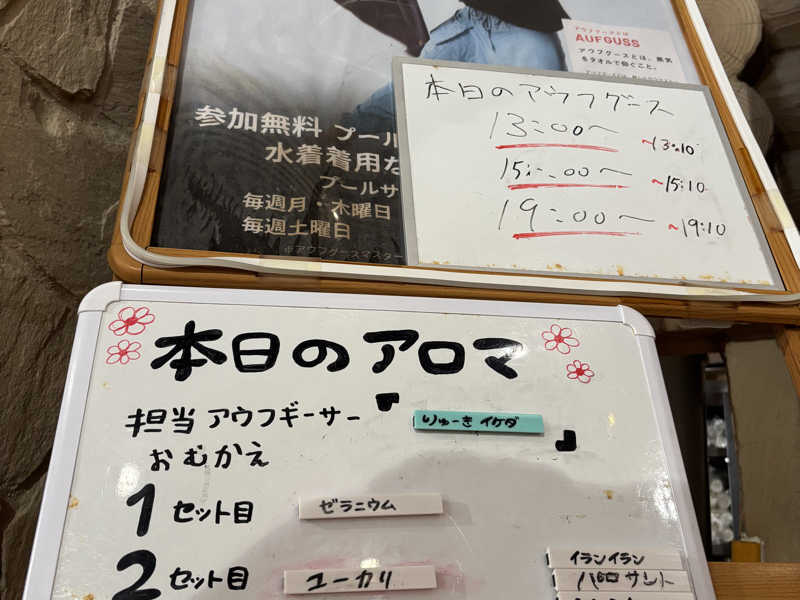 アウフグースとは
AUFGUSS
アウフグースとは、蒸気
をタオルで仰ぐこと。
参加無料 プール
水着着用な
プールサ
毎週月・木曜日
毎週土曜日
※アウフグースマスター
本日のアウフグース
13:00〜 〜13:10
15:00〜 〜15:10
19:00〜 〜19:10
本日のアロマ
担当 アウフギーサー
『りゅーき イケダ』
おむかえ
1セット目 ゼラニウム
2セット目 ユーカリ
イランイラン
パロサント